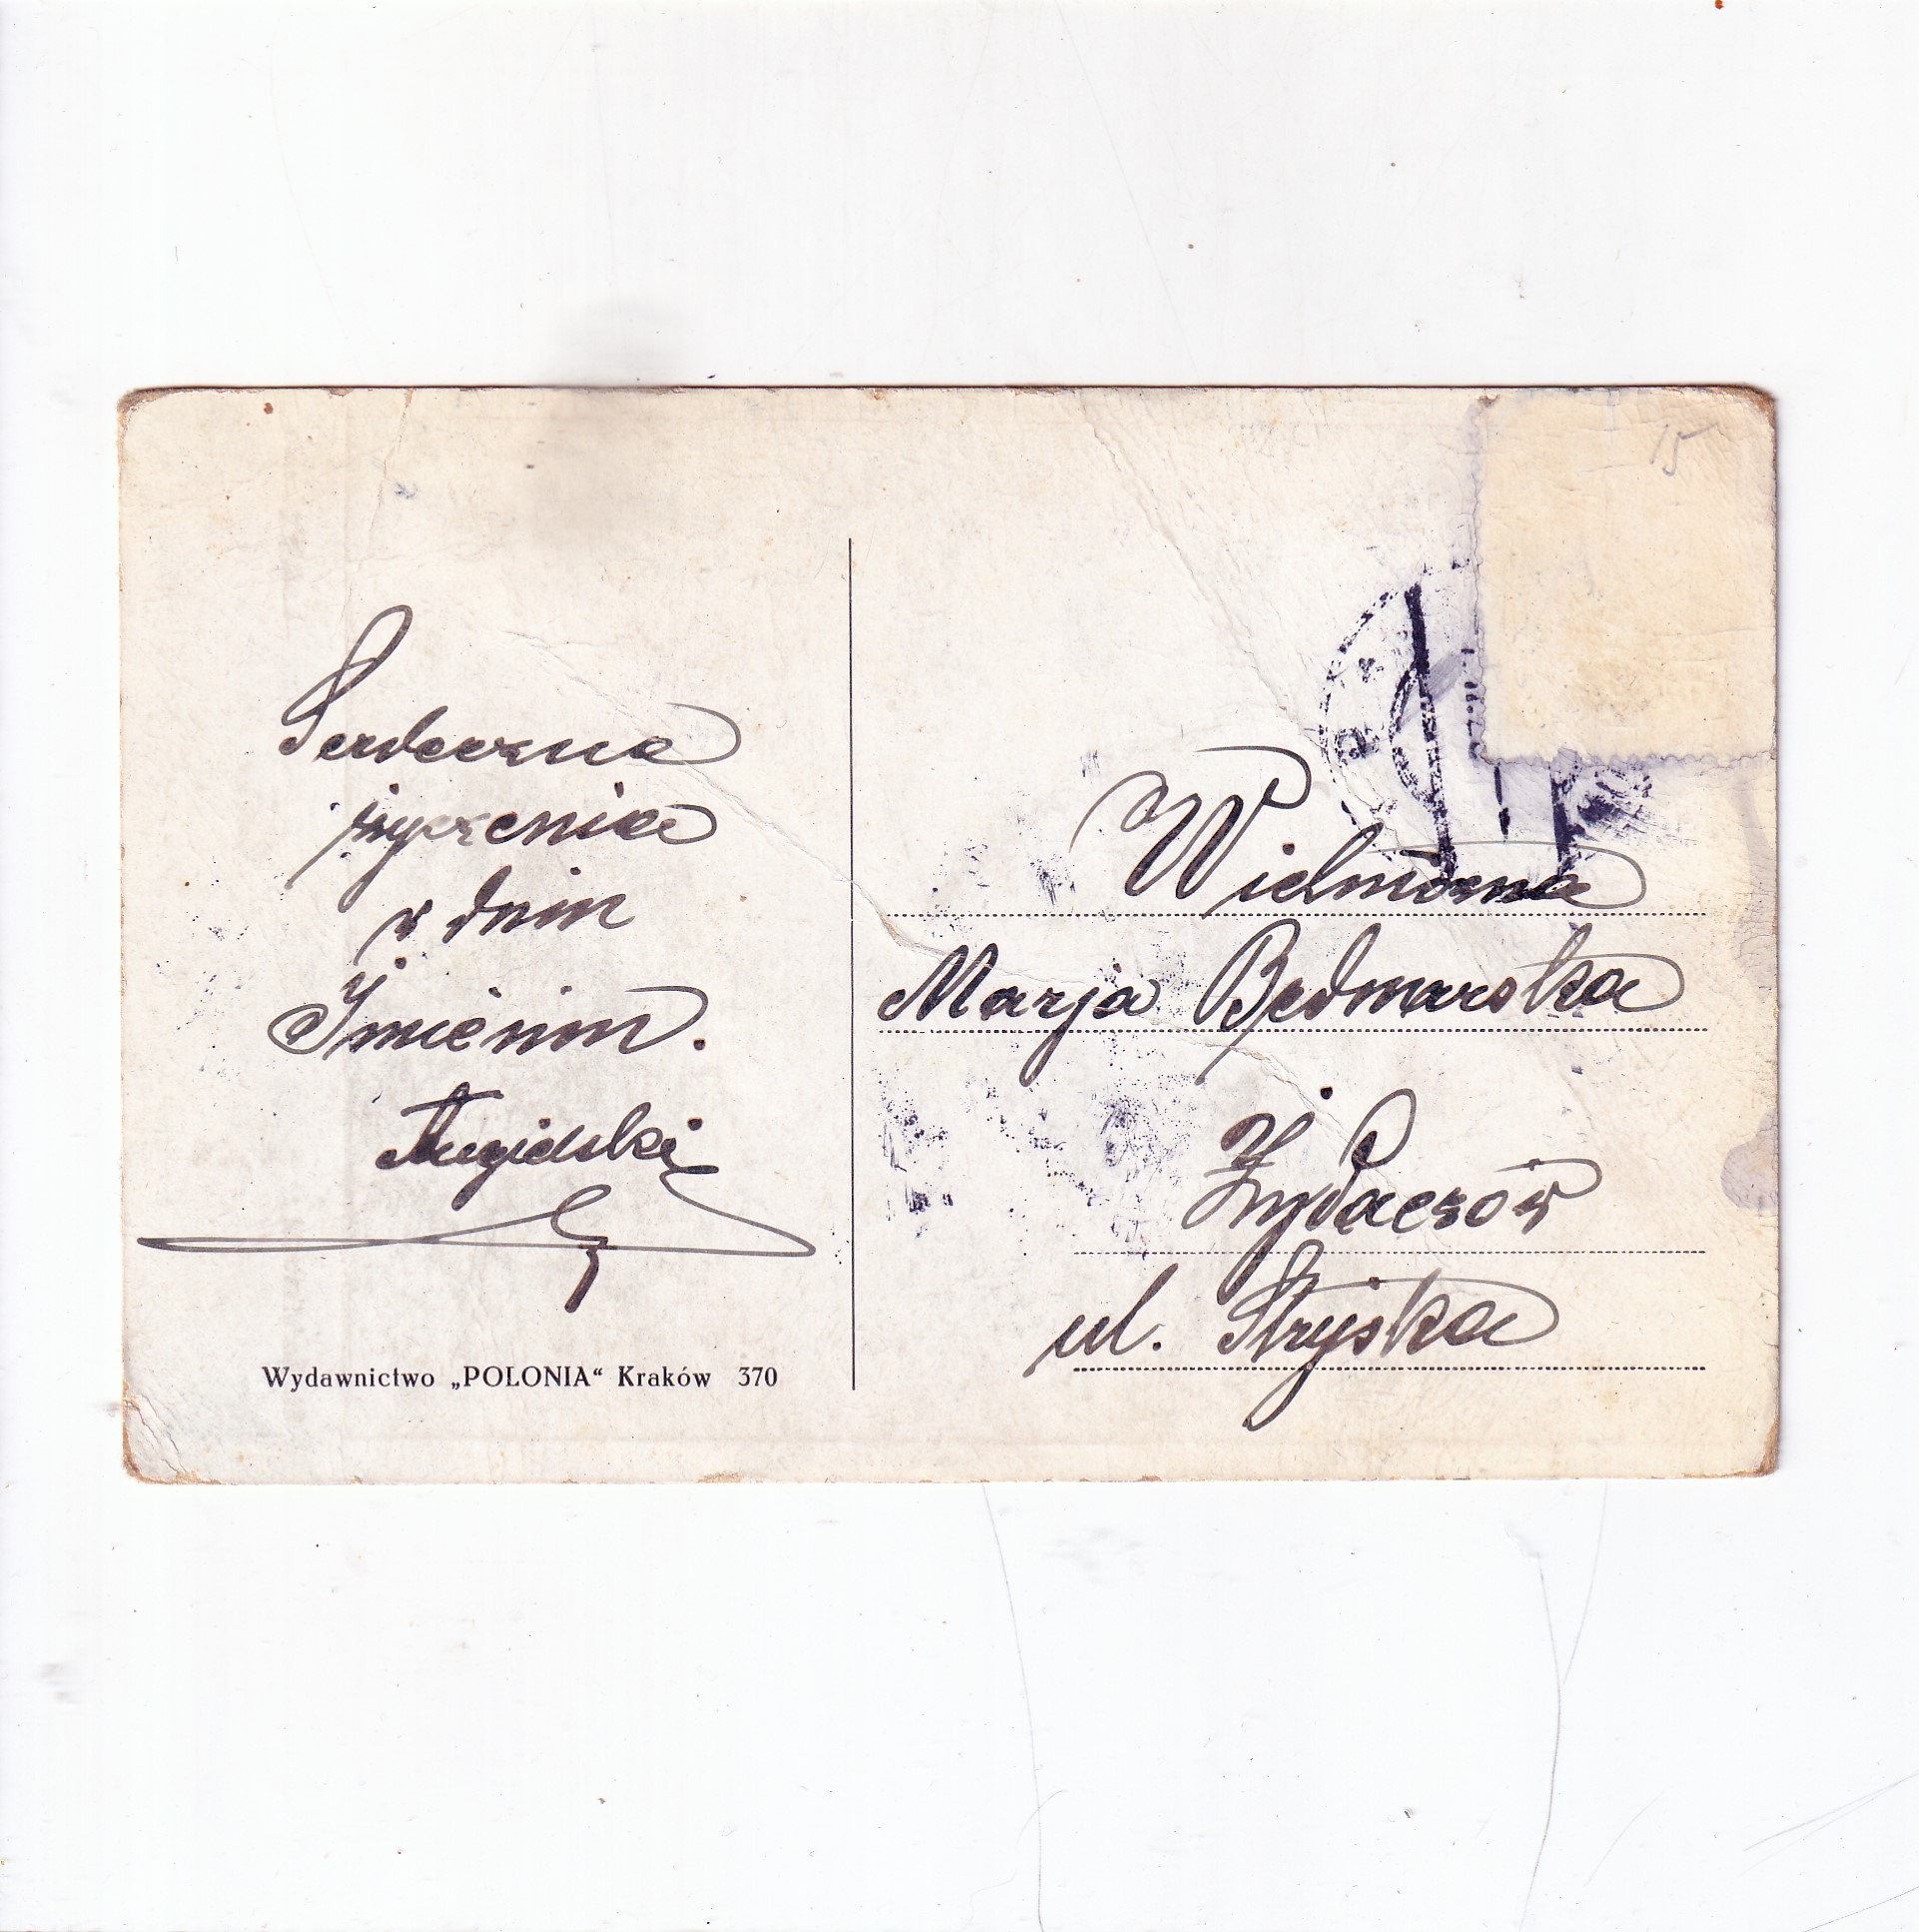 Serdeczne
życzenia
w dniu
Imienin.
Wydawnictwo „POLONIA“ Kraków 370
15
Wielmożna
Marja Bednarska
Żydaczów
ul. Stryjska